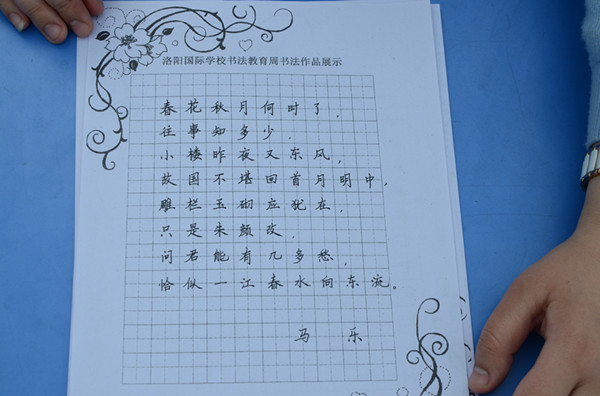 洛阳国际学校书法教育周书法作品展示
春花秋月何时了，
往事知多少．
小楼昨夜又东风，
故国不堪回首月明中，
雕栏玉砌应犹在，
只是朱颜改．
问君能有几多愁，
恰似一江春水向东流。
马乐